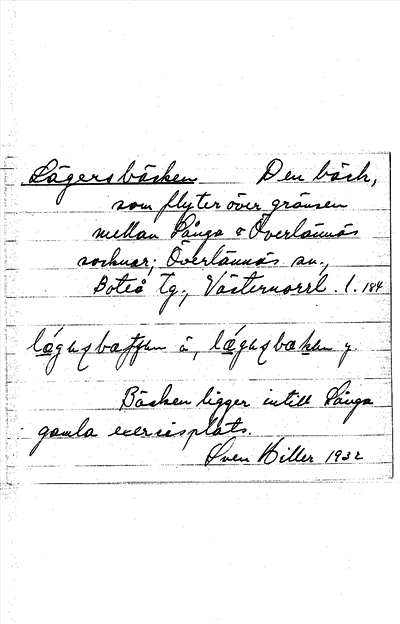 Lägersbäcken Den bäck,
som flyter över gränsen
mellan Sånga o Överlännäs
socknar; Överlännäs sn.,
Boteå tg., Västernorrl. l. 184
å, y.
Bäcken ligger intill Sånga
gamla exercisplats.
Sven Hiller 1932